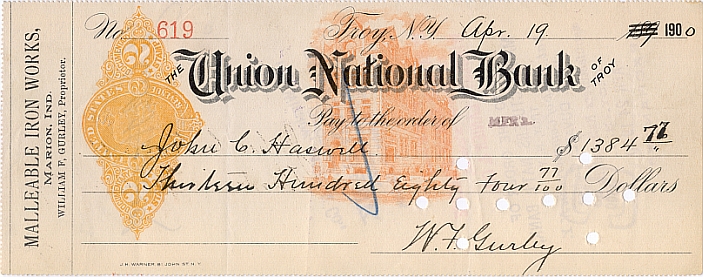 MALLEABLE IRON WORKS,
MARION, IND.
WILLIAM F. GURLEY, Proprietor.
No. 619
Troy, N.Y. Apr. 19 1900
THE Union National Bank OF TROY
Pay to the order of
John C. Haswell $1384 77
Thirteen Hundred Eighty Four 77/100 Dollars
W. F. Gurley
J.H. WARNER, 81 JOHN ST. N.Y.
UNITED STATES